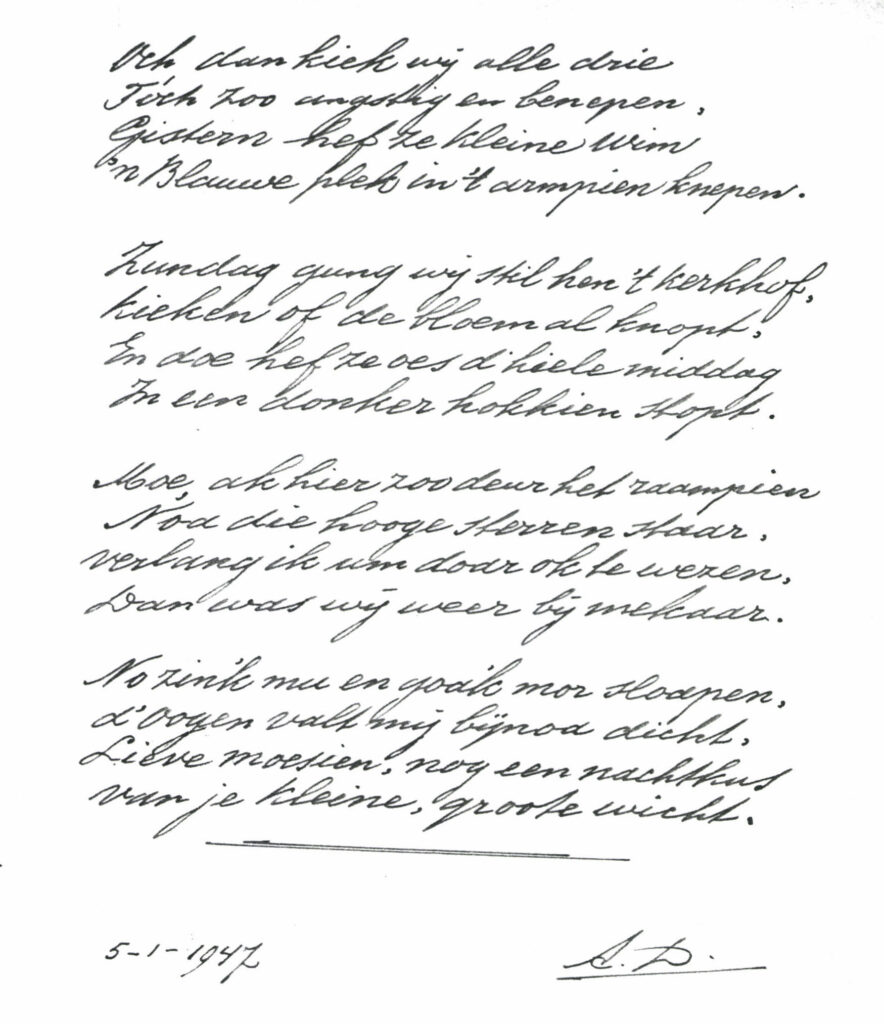 Och dan kiek wij alle drie
Tóch zoo angstig en benepen,
Gistern hef ze kleine Wim
'n Blauwe plek in 't armpien knepen.
Zundag gung wij stil hen 't kerkhof,
kieken of de bloem al knopt,
En doe hef ze oes d' hiele middag
In een donker hokkien stopt.
Moe, ak hier zoo deur het raampien
Noa die hooge sterren staar,
verlang ik um doar ok te wezen,
Dan was wij weer bij mekaar.
No zin'k mu en goa'k mor sloapen,
d'Oogen valt mij bijnoa dicht,
Lieve moesien, nog een nachtkus
van je kleine, groote wicht.
5-1-1947
A.D.